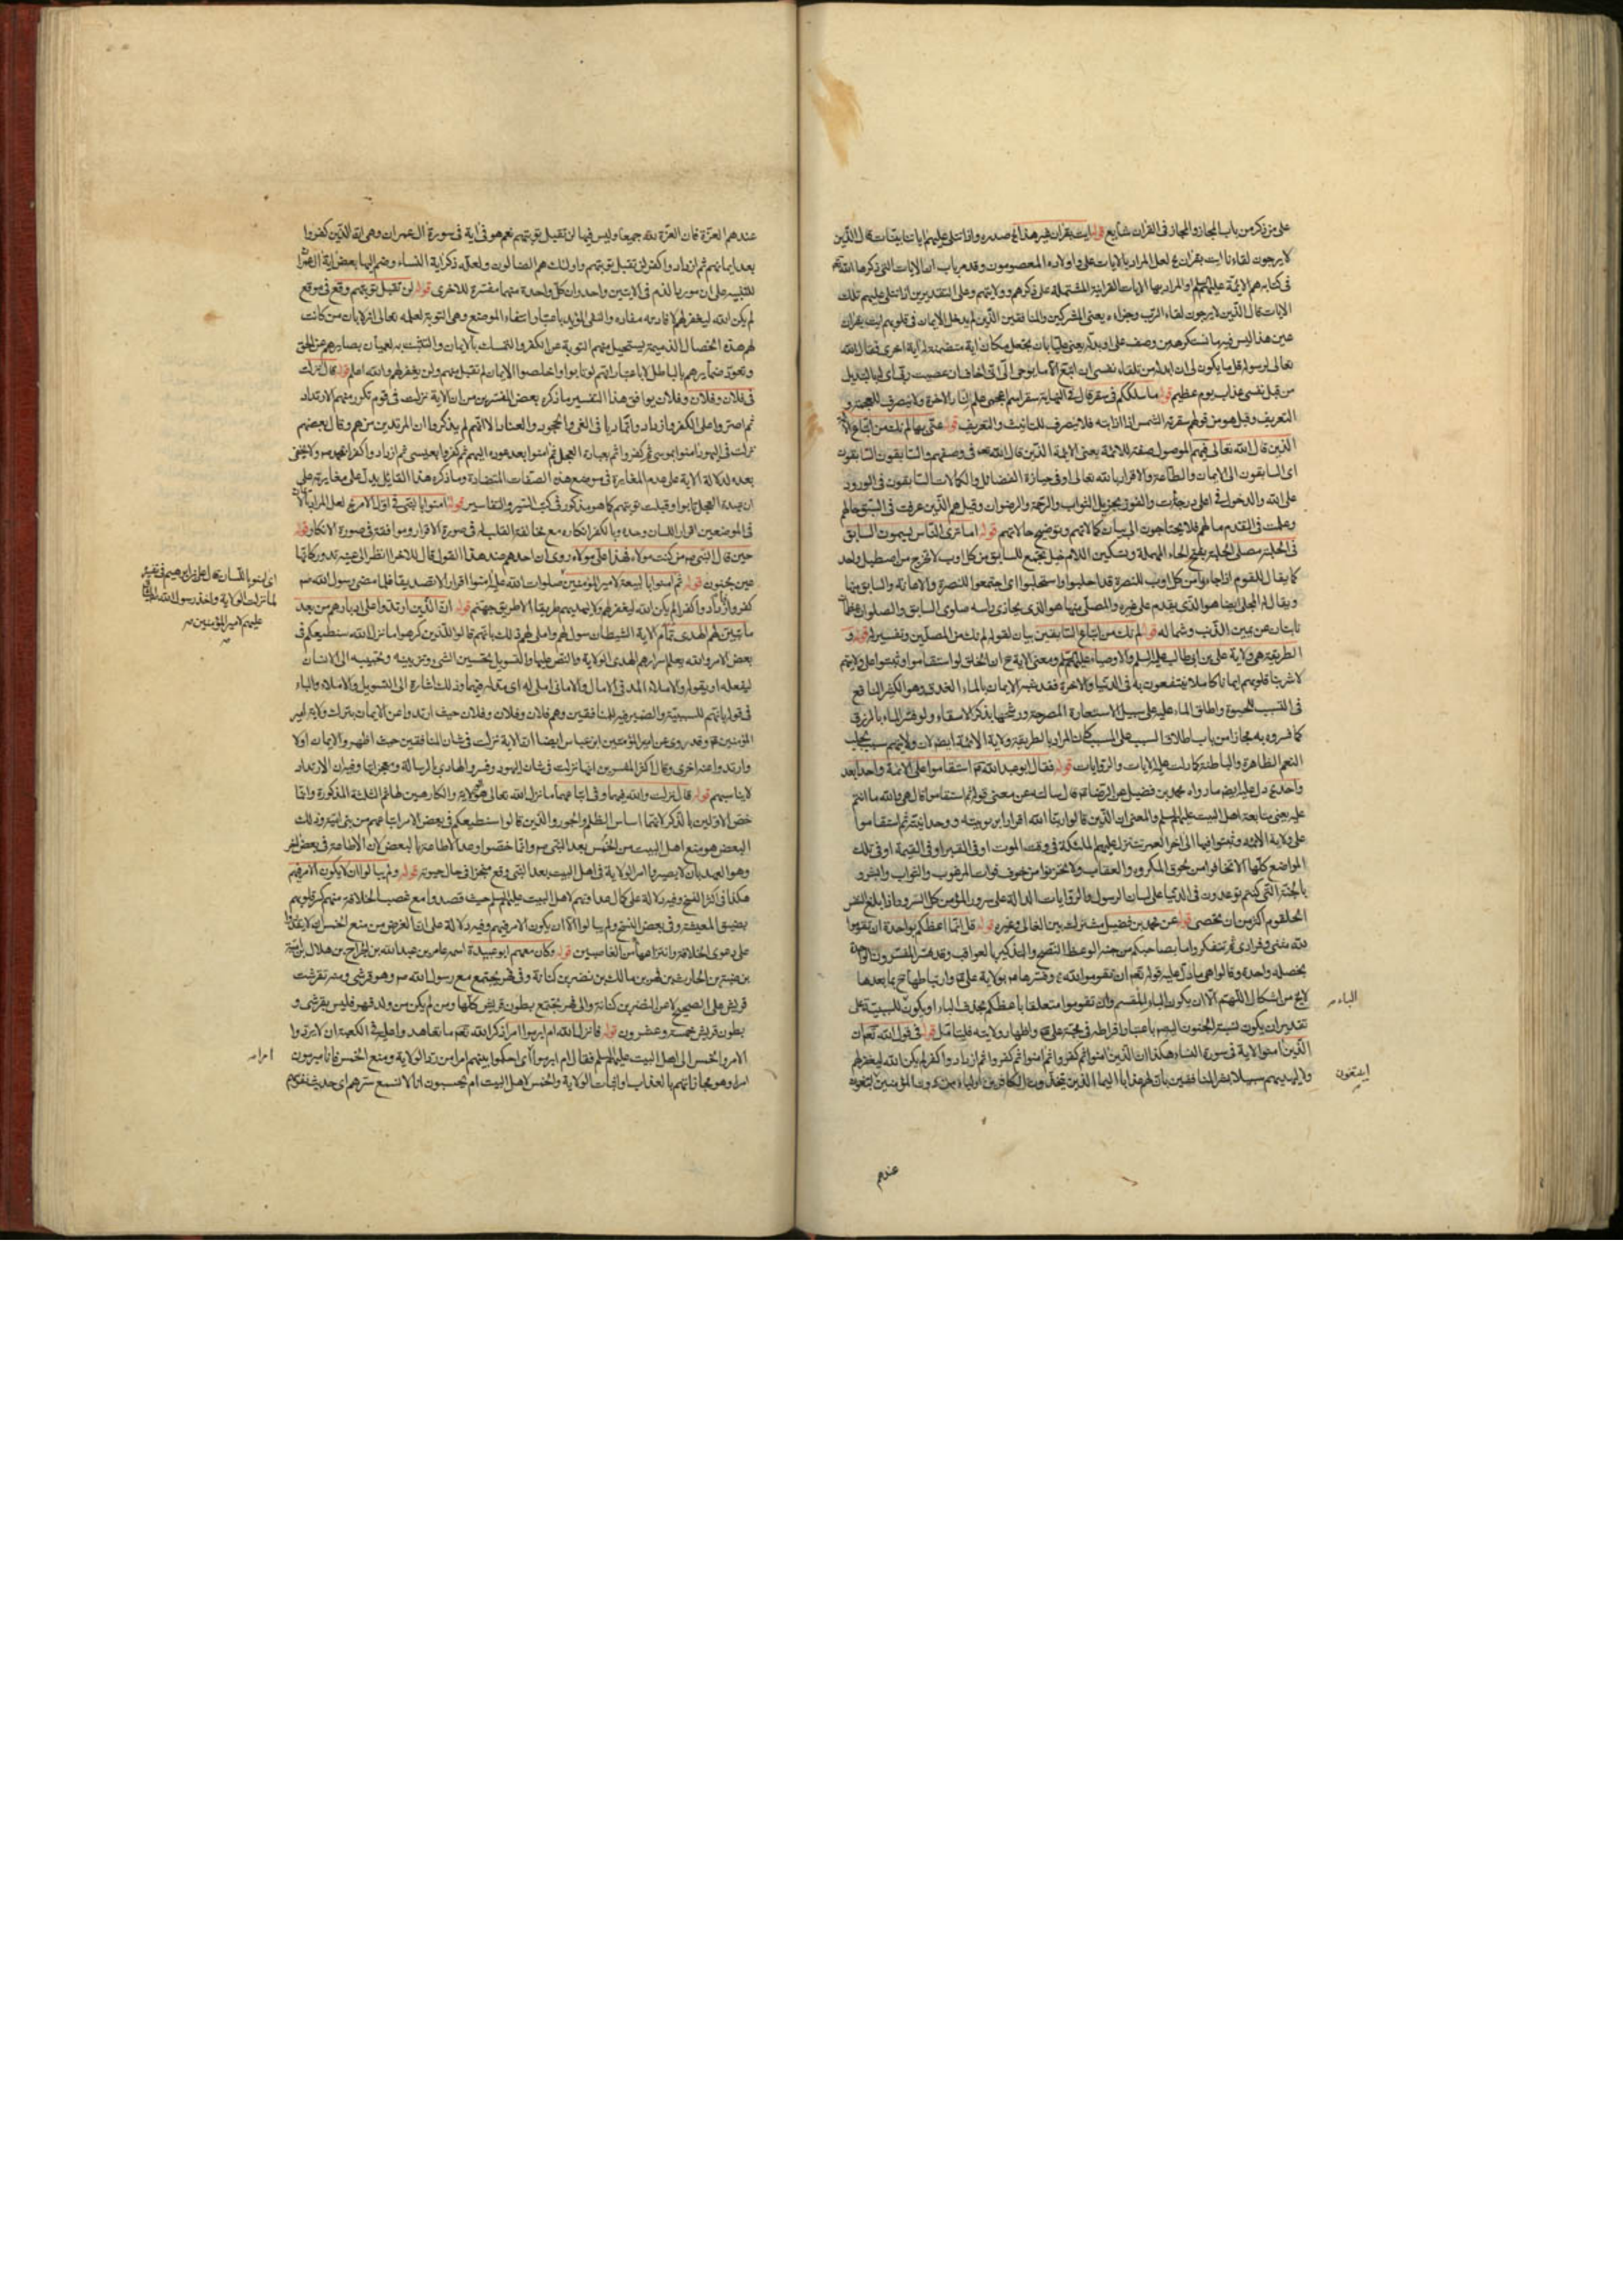 على من ذكر من باب المجاز والمجاز في القران شايع قوله ايت بقران غير هذا الخ صدره واذا تتلى عليهم اياتنا بينات قال الذين
لا يرجون لقاءنا ايت بقران لعل المراد بالايات علي واولاده المعصومون وقد مر باب ان الايات التي ذكرها الله
في كتابه هم الائمة عليهم السلم او المراد بها الايات القرانية المشتملة على ذكرهم وولايتهم وعلى التقديرين اذا تتلى عليهم تلك
الايات قال الذين لا يرجون لقاء الرب وجزاءه يعني المشركين والمنافقين الذين لم يدخل الايمان في قلوبهم ايت بقران
غير هذا ليس فيه ما نستكرهه من وصف علي او بدله يعني عليا بان يجعل مكان اية متضمنة له اية اخرى فقال الله
تعالى لرسوله قل ما يكون لي ان ابدله من تلقاء نفسي ان اتبع الا ما يوحى الي اني اخاف ان عصيت ربي اي بالتبديل
من قبل نفسي عذاب يوم عظيم قوله ما سلككم في سقر قال في النهاية سقر اسم اعجمي علم لنار الاخرة ولا ينصرف للعجمة و
التعريف وقيل هو من قولهم سقرته الشمس اذا اذابته فلا ينصرف للتانيث والتعريف قوله عنى بها لم نك من اتباع الائمة
الذين قال الله تعالى فيهم الموصول صفة للائمة يعني الائمة الذين قال الله تعه في وصفهم والسابقون السابقون
اي السابقون الى الايمان والطاعة والاقرار بالله تعالى او في حيازة الفضائل والكمالات السابقون في الورود
على الله والدخول في اعلى درجات والفوز بجزيل الثواب والرحمة والرضوان وقيل هم الذين عرفت في السبق حالهم
وعلمت في التقدم مالهم فلا يحتاجون الى بيان كمالاتهم وتوضيح حالاتهم قوله اما ترى الناس يسمون السابق
في الحلبة مصلي الحلبة بفتح الحاء المهملة وتسكين اللام خيل يجتمع للسابق من كل اوب لا تخرج من اصطبل واحد
كما يقال للقوم اذا جاءوا من كل اوب للنصرة قد احلبوا واستحلبوا اي اجتمعوا للنصرة والاعانة والسابق بينها
ويقال له المجلي ايضا هو الذي يقدم على غيره والمصلي بينها هو الذي يحاذي راسه صلوي السابق والصلوان عظمان
نابتان عن يمين الذنب وشماله قوله لم نك من اتباع السابقين بيان لقوله لم نك من المصلين وتفسير له قوله و
الطريقة هي ولاية علي بن ابي طالب عليه السلم والاوصياء عليهم السلم ومعنى الاية ح ان الخلق لو استقاموا وثبتوا على ولايتهم
لاشربنا قلوبهم ايمانا كاملا ينتفعون به في الدنيا والاخرة فقد شبه الايمان بالماء الغدق وهو الكثير النافع
في التسبب للحيوة واطلق الماء عليه على سبيل الاستعارة المصرحة ورشحها بذكر الاسقاء ولو فسر الماء بالرزق
كما فسروه به مجازا من باب اطلاق السبب على المسبب كان المراد بالطريقة ولاية الائمة ايضا لان ولايتهم سبب لجلب
النعم الظاهرة والباطنة كما دلت عليه الايات والروايات قوله فقال ابو عبد الله ع استقاموا على الائمة واحدا بعد
واحد دل عليه ايضا ما رواه محمد بن فضيل عن الرضا ع قال سالته عن معنى قوله ثم استقاموا قال هي والله ما انتم
عليه يعني متابعة اهل البيت عليهم السلم والمعنى ان الذين قالوا ربنا الله اقرارا بربوبيته ووحدانيته ثم استقاموا
على ولاية الائمة وثبتوا فيها الى اخر العمر تتنزل عليهم الملئكة في وقت الموت او في القبر او في القيمة او في تلك
المواضع كلها الا تخافوا من لحوق المكروه والعقاب ولا تحزنوا من خوف فوات المرغوب والثواب وابشروا
بالجنة التي كنتم توعدون في الدنيا على لسان الرسول والروايات الدالة على سرور المؤمن كل السرور اذا بلغ النفس
الحلقوم اكثر من ان تحصى قوله عن محمد بن فضيل مشترك بين الغالي وغيره قوله قل انما اعظكم بواحدة ان تقوموا
لله مثنى وفرادى ثم تتفكروا ما بصاحبكم من جنة الوعظ النصح والتذكير بالعواقب وقد فسر المفسرون الواحدة
بخصلة واحدة وقالوا هي ما دل عليه قوله تعه ان تقوموا لله وفسرها ع بولاية علي ع وارتباطها ح بما بعدها
لا يخ من اشكال اللهم الا ان يكون الباء للقسم وان تقوموا متعلقا باعظكم بحذف الباء او يكون للسببية على
تقدير ان يكون نسبة الجنون اليه ص باعتبار افراطه في محبة علي ع واظهار ولايته فليتامل قوله في قول الله تعه ان
الذين امنوا الاية في سورة النساء هكذا ان الذين امنوا ثم كفروا ثم امنوا ثم كفروا ثم ازدادوا كفرا لم يكن الله ليغفر لهم
ولا ليهديهم سبيلا بشر المنافقين بان لهم عذابا اليما الذين يتخذون الكافرين اولياء من دون المؤمنين ايبتغون
الباء
ايبتغون
عندهم
عندهم العزة فان العزة لله جميعا وليس فيها لن تقبل توبتهم نعم هو في اية في سورة ال عمران وهي ان الذين كفروا
بعد ايمانهم ثم ازدادوا كفرا لن تقبل توبتهم واولئك هم الضالون ولعله ذكر اية النساء وضم اليها بعض اية ال عمران
للتنبيه على ان مورد الذم في الايتين واحد وان كل واحدة منهما مفسرة للاخرى قوله لن تقبل توبتهم وقع في موقع
لم يكن الله ليغفر لهم لافادته مفاده والنفي المؤبد باعتبار انتفاء الموضع وهي التوبة لعلمه تعالى انه لابان من كانت
لهم هذه الخصال الذميمة يستحيل منهم التوبة عن الكفر والتمسك بالايمان والتثبت به لعميان بصايرهم عن الحق
وتعود ضمايرهم بالباطل لا باعتبار انهم لو تابوا واخلصوا الايمان لم تقبل منهم ولن يغفر لهم والله اعلم قوله قال نزلت
في فلان وفلان وفلان يوافق هذا التفسير ما ذكره بعض المفسرين من ان الاية نزلت في قوم تكرر منهم الارتداد
ثم اصروا على الكفر وازدادوا تماديا في الغي والجحود والعناد الا انهم لم يذكروا ان المرتدين من هم وقال بعضهم
نزلت في اليهود امنوا بموسى ثم كفروا ثم بعبادة العجل ثم امنوا بعد عوده اليهم ثم كفروا بعيسى ثم ازدادوا كفرا بمحمد ص ولا يخفى
بعده لدلالة الاية على عدم المغايرة في موضع هذه الصفات المتضادة وما ذكره هذا القائل يدل على مغايرته على
ان عبدة العجل تابوا وقبلت توبتهم كما هو مذكور في كتب السير والتفاسير قوله امنوا بالنبي في اول الامر الخ لعل المراد بالايمان
في الموضعين اقرار اللسان وحده وبالكفر انكاره مع مخالفة القلب له في صورة الاقرار وموافقته في صورة الانكار قوله
حين قال النبي ص من كنت مولاه فهذا علي مولاه روى ان احدهم عند هذا القول قال للاخر انظر الى عينيه تدور كانها
عين مجنون قوله ثم امنوا بالبيعة لامير المؤمنين صلوات الله عليه امنوا اقرارا لا تصديقا فلما مضى رسول الله ص
كفروا وازدادوا كفرا لم يكن الله ليغفر لهم ولا ليهديهم طريقا الا طريق جهنم قوله ان الذين ارتدوا على ادبارهم من بعد
ما تبين لهم الهدى تمام الاية الشيطان سول لهم واملى لهم ذلك بانهم قالوا للذين كرهوا ما نزل الله سنطيعكم في
بعض الامر والله يعلم اسرارهم الهدى الولاية والنص عليها والتسويل تحسين الشيء وتزيينه وتحبيبه الى الانسان
ليفعله او يقوله والاملاء المد في الامال والاماني املى له اي مد له فيها وذلك اشارة الى التسويل والاملاء والباء
في قوله بانهم للسببية والضمير فيه للمنافقين وهم فلان وفلان وفلان حيث ارتدوا عن الايمان بترك ولاية امير
المؤمنين ع وقد روي عن امير المؤمنين ابن عباس ايضا ان الاية نزلت في شان المنافقين حيث اظهروا الايمان اولا
وارتدوا عنه اخرى وقال اكثر المفسرين انها نزلت في شان اليهود وفسروا الهادي بالرسالة ومعجزاتها وغيران الارتداد
لا يناسبهم قوله قال نزلت والله فيهما وفي اتباعهما ما نزل الله تعالى هو الولاية والكارهين لها هم الثلثة المذكورة وانما
خص الاولين بالذكر لانهما اساس الظلم والجور والذين قالوا سنطيعكم في بعض الامر اتباعهم من بني امية وذلك
البعض هو منع اهل البيت من الخمس بعد النبي ص وانما خصصوا وعد الاطاعة بالبعض لان الاطاعة في بعض اخر
وهو العهد بان لا يصيروا امر الولاية في اهل البيت بعد النبي وقع منجزا في حال حيوته قوله ولم يبالوا ان لا يكون الامر فيهم
هكذا في اكثر النسخ وفيه دلالة على كمال عداوتهم لاهل البيت عليهم السلم حيث قصدوا مع غصب الخلافة منهم كسر قلوبهم
بضيق المعيشة وفي بعض النسخ ولم يبالوا الا ان يكون الامر فيهم وفيه دلالة على ان الغرض من منع الخمس ان لا يقدروا
على دعوى الخلافة وانتزاعها من الغاصبين قوله وكان معهم ابو عبيدة اسمه عامر بن عبد الله بن الجراح بن هلال بن اهيب
بن ضبة بن الحارث بن فهر بن مالك بن نضر بن كنانة وفي فهر يجتمع مع رسول الله ص وهو قرشي ومنه تقرشت
قريش على الصحيح لا من النضر بن كنانة والى فهر يجتمع بطون قريش كلها ومن لم يكن من ولد فهر فليس بقرشي و
بطون قريش خمسة وعشرون قوله فانزل الله ام ابرموا امرا ذكر الله تعه ما تعاهدوا عليه في الكعبة ان لا يردوا
الامر والخمس الى اهل البيت عليهم السلم فقال ام ابرموا اي احكموا بينهم امرا من رد الولاية ومنع الخمس فانا مبرمون
امرا وهو مجازاتهم بالعذاب واثبات الولاية والخمس لاهل البيت ام يحسبون انا لا نسمع سرهم اي حديث نفسهم
اي امنوا باللسان قال علي بن ابرهيم في تفسيره
لما نزلت الولاية واخذ رسول الله الميثاق
عليهم لامير المؤمنين
ص
امرا